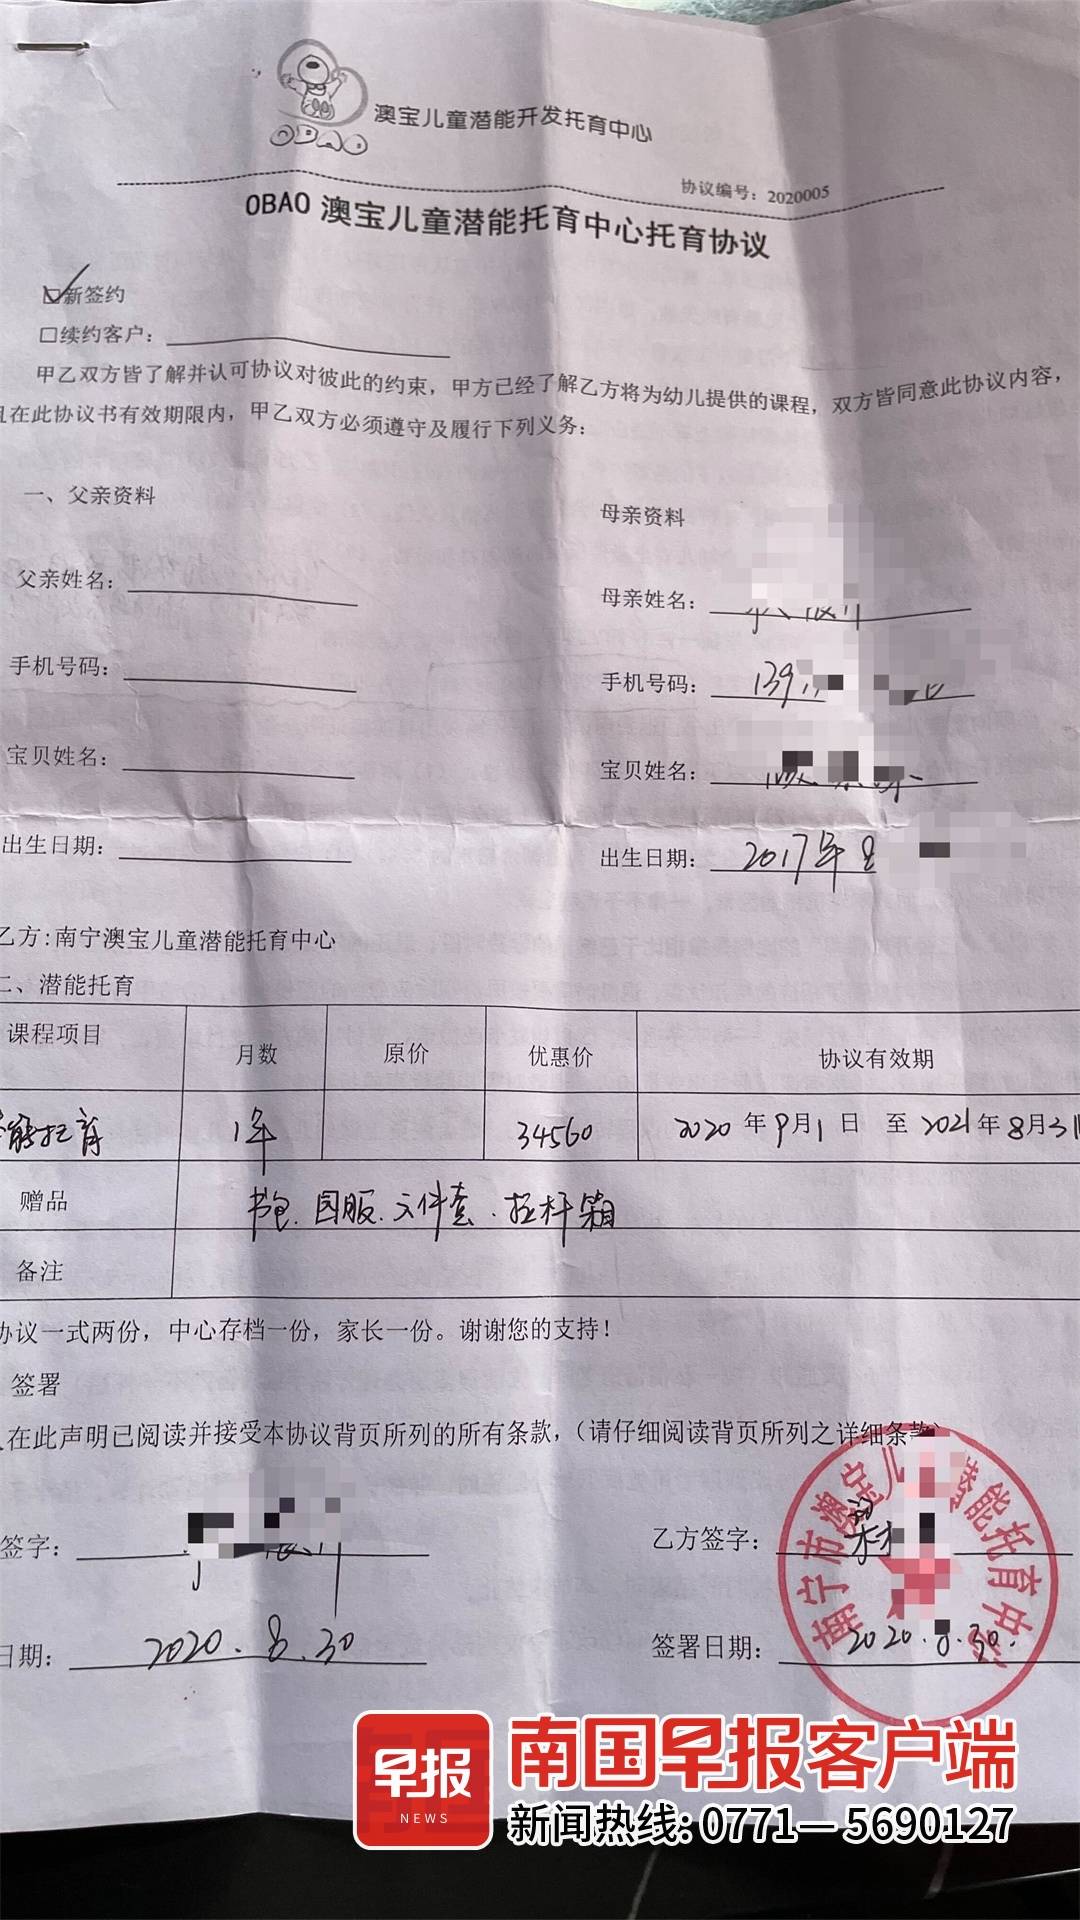 OBAO
澳宝儿童潜能开发托育中心
协议编号：2020005
OBAO 澳宝儿童潜能托育中心托育协议
☑新签约
□续约客户：
甲乙双方皆了解并认可协议对彼此的约束，甲方已经了解乙方将为幼儿提供的课程，双方皆同意此协议内容，
在此协议书有效期限内，甲乙双方必须遵守及履行下列义务：
一、父亲资料
母亲资料
父亲姓名：
母亲姓名：
手机号码：
手机号码：139
宝贝姓名：
宝贝姓名：
出生日期：
出生日期：2017年
乙方:南宁澳宝儿童潜能托育中心
二、潜能托育
课程项目 月数 原价 优惠价 协议有效期
能托育 1年 34560 2020年9月1日 至 2021年8月31
赠品 书包.园服.文件套.拉杆箱
备注
协议一式两份，中心存档一份，家长一份。谢谢您的支持！
签署
在此声明已阅读并接受本协议背页所列的所有条款，（请仔细阅读背页所列之详细条款）
签字：
乙方签字：梁
日期：2020.8.30
签署日期：2020.8.30.
南宁市澳宝儿 潜能托育中
早报
NEWS
南国早报客户端
新闻热线：0771—5690127